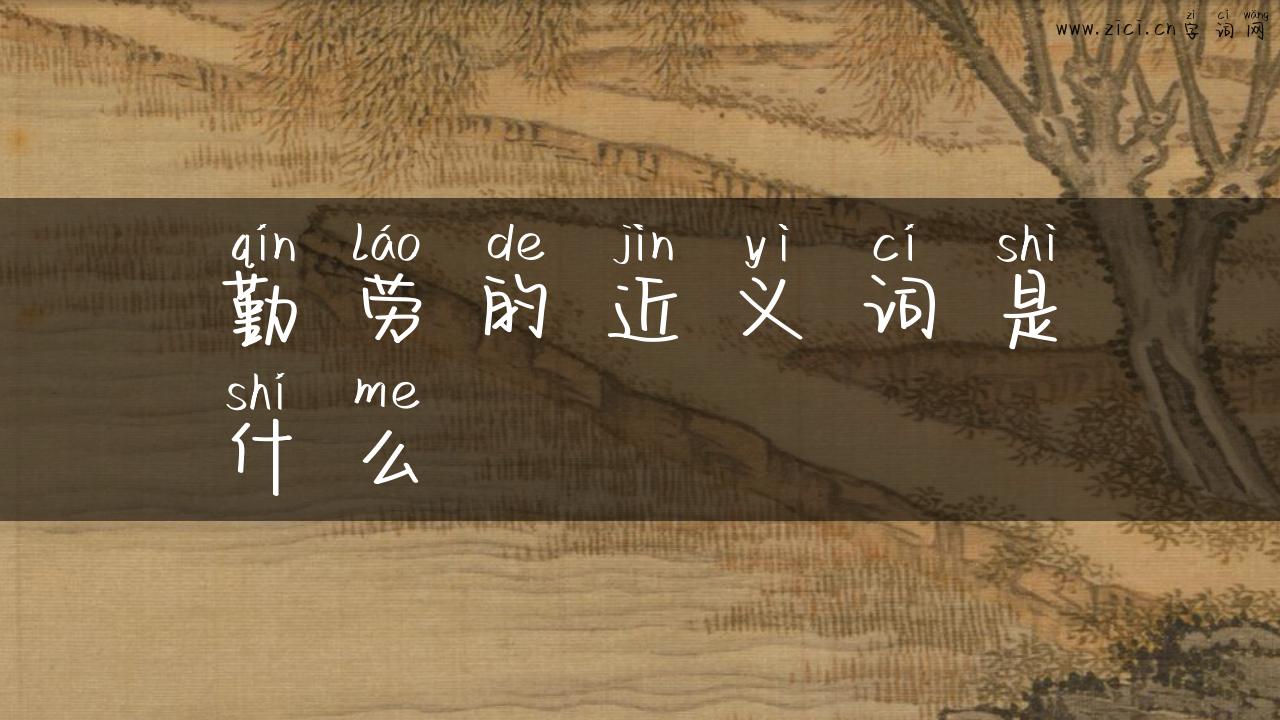 zì cí wǎng
www.zici.cn字词网
qín láo de jìn yì cí shì
勤劳的近义词是
shí me
什么